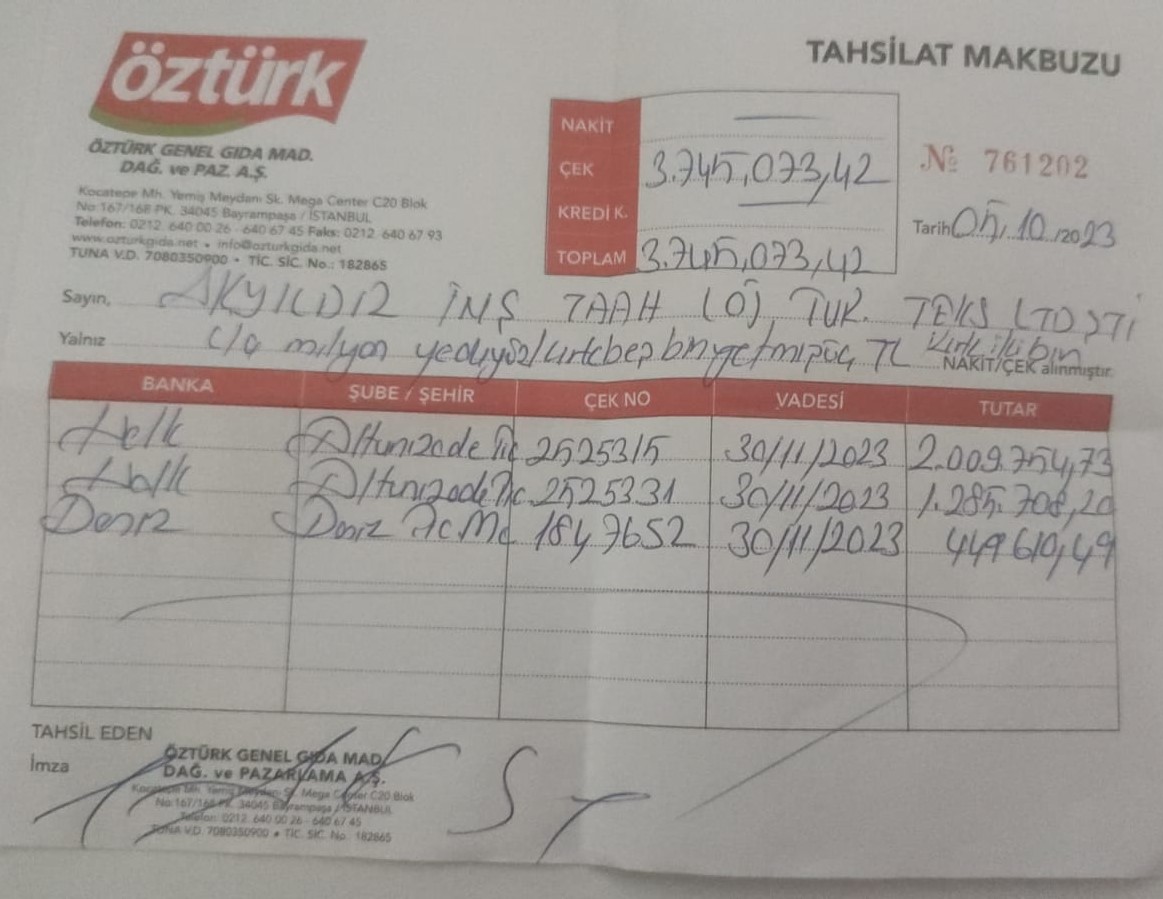 öztürk
TAHSİLAT MAKBUZU
ÖZTÜRK GENEL GIDA MAD.
DAĞ. ve PAZ. A.Ş.
Kocatepe Mh. Yemiş Meydanı Sk. Mega Center C20 Blok
No:167/168 PK. 34045 Bayrampaşa / İSTANBUL
Telefon: 0212. 640 00 26 - 640 67 45 Faks: 0212. 640 67 93
www.ozturkgida.net • info@ozturkgida.net
TUNA V.D. 7080350900 • TİC. SİC. No.: 182865
NAKİT
ÇEK 3.745,073,42
KREDİ K.
TOPLAM 3.745,073,42
№ 761202
Tarih 05/10/2023
Sayın, AKYILDIZ İNŞ TAAH (Ö) TUR. TEKS LTD ŞTİ
Yalnız üç milyon yediyüzkırkbeş bin yetmişüç TL Kırk iki
NAKİT/ÇEK alınmıştır.
BANKA ŞUBE / ŞEHİR ÇEK NO VADESİ TUTAR
Halk Altunizade Tic 2525315 30/11/2023 2.009.754,73
Halk Altunizade Tic 2525331 30/11/2023 1.285.708,20
Deniz Deniz Tic Me 1847652 30/11/2023 449610,49
TAHSİL EDEN
İmza
ÖZTÜRK GENEL GIDA MAD.
DAĞ. ve PAZARLAMA A.Ş.
Kocatepe Mh. Yemiş Meydanı Sk. Mega Center C20 Blok
No:167/168 PK. 34045 Bayrampaşa / İSTANBUL
Telefon: 0212. 640 00 26 - 640 67 45
TUNA V.D. 7080350900 • TİC. SİC. No: 182865